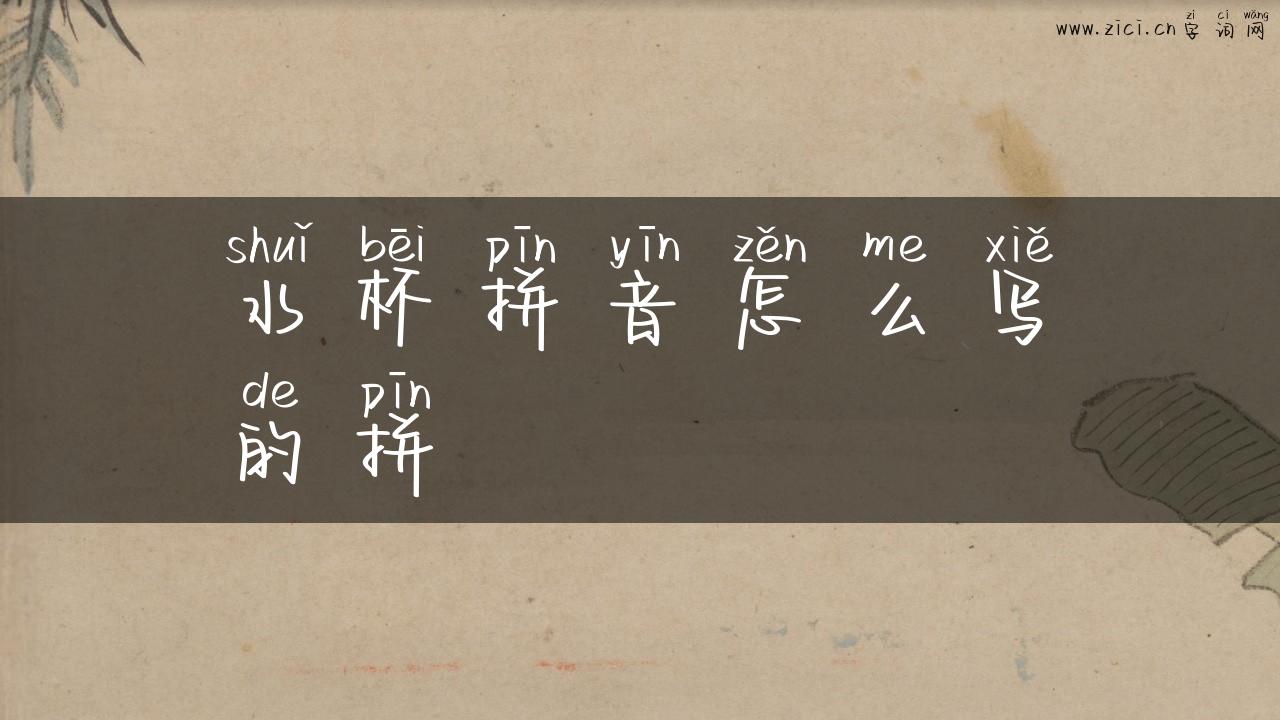 zì cí wǎng
www.zici.cn 字 词 网
shuǐ bēi pīn yīn zěn me xiě
水 杯 拼 音 怎 么 写
de pīn
的 拼